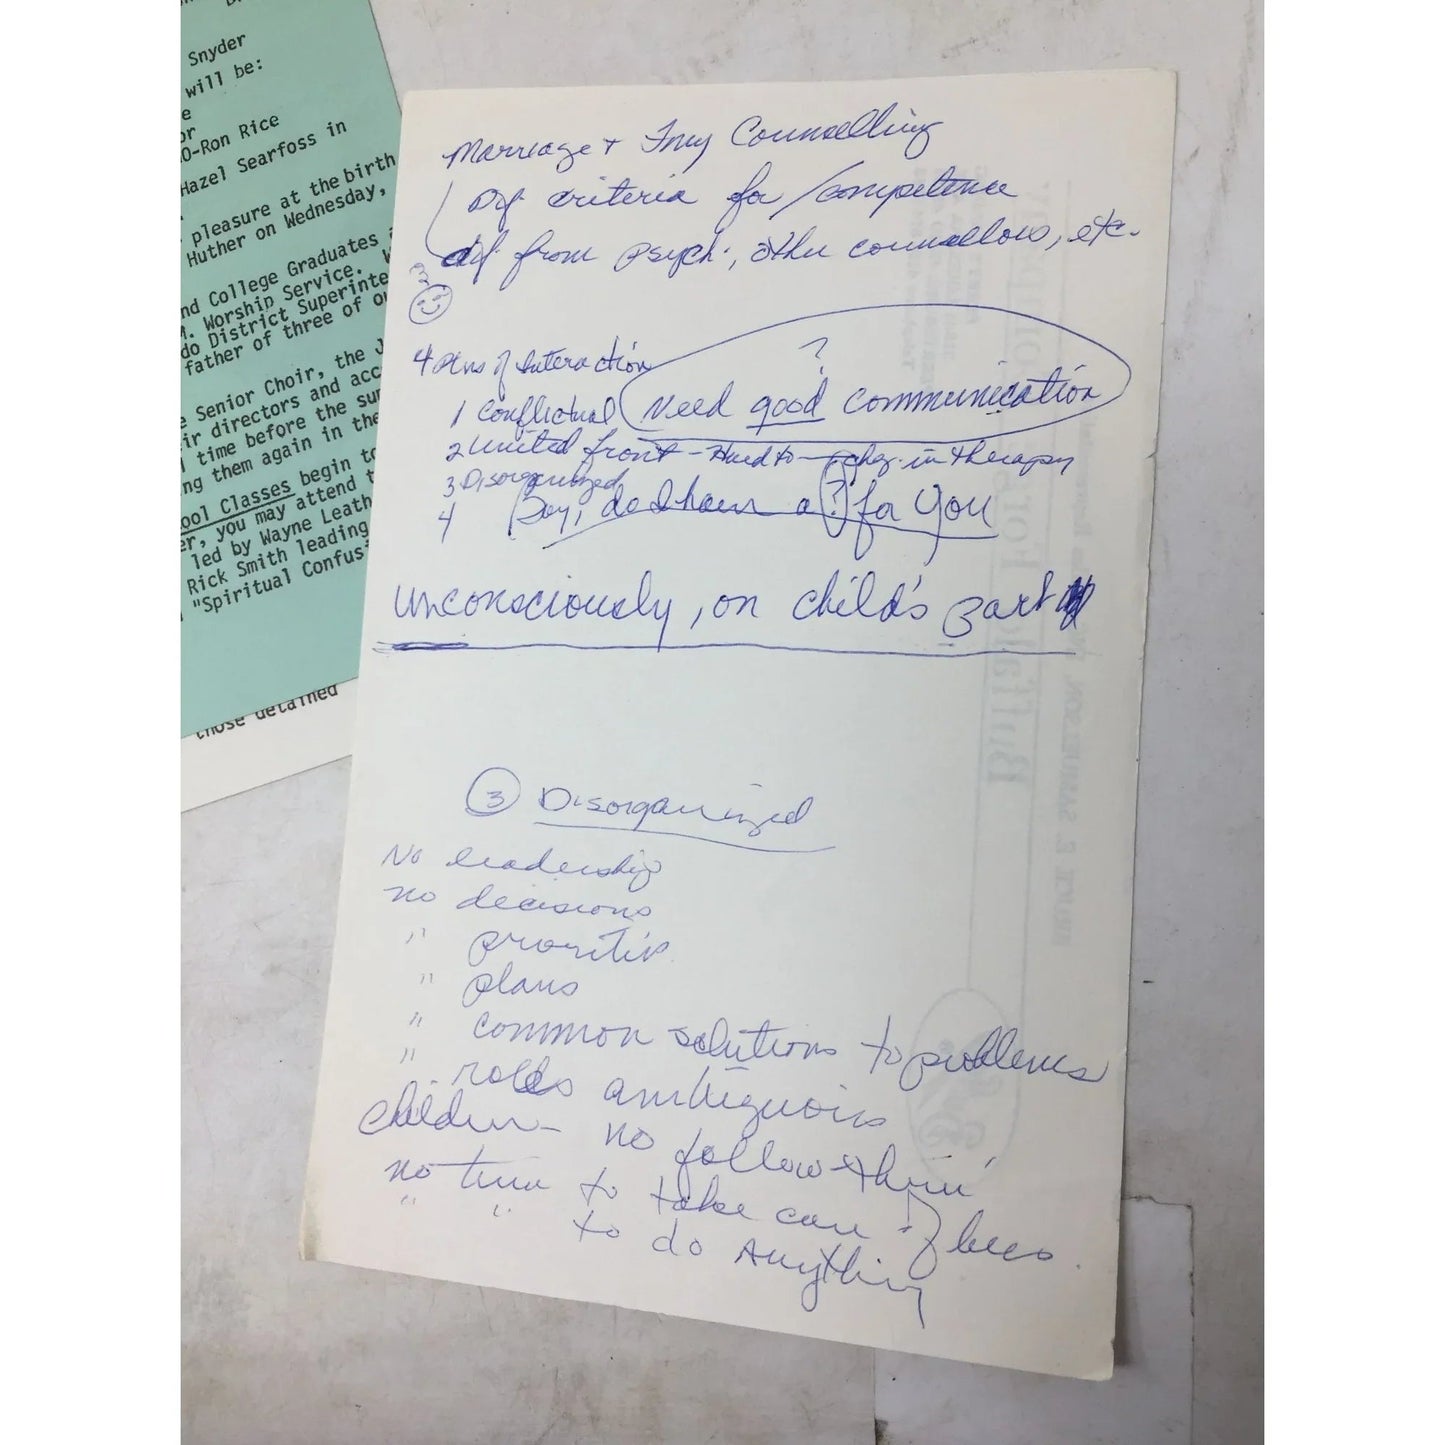 Snyder
will be:
O-Ron Rice
Hazel Searfoss in
pleasure at the birth
Huther on Wednesday,
nd College Graduates
M. Worship Service.
do District Superinte
father of three of ou
e Senior Choir, the J
ir directors and acc
time before the su
ng them again in the
ool Classes begin to
er, you may attend t
led by Wayne Leath
Rick Smith leading
"Spiritual Confusi
those detained
Marriage + Fmy Counselling
Dif. criteria for /competence
dif from psych., other counsellors, etc.
4 of Interaction
?
1 Conflictual Need good communication
2 United front - Hard to in therapy
3 Disorganized
4 Boy, do I have a ? for you
unconsciously, on child's part
3 Disorganized
No leadership
no decisions
" priorities
" plans
" common solutions to problems
" roles ambiguous
Children - no follow thru
no time to take care of
" " to do Anything
Buffalo Forge Company
BRUCE E. SAMUELSON,